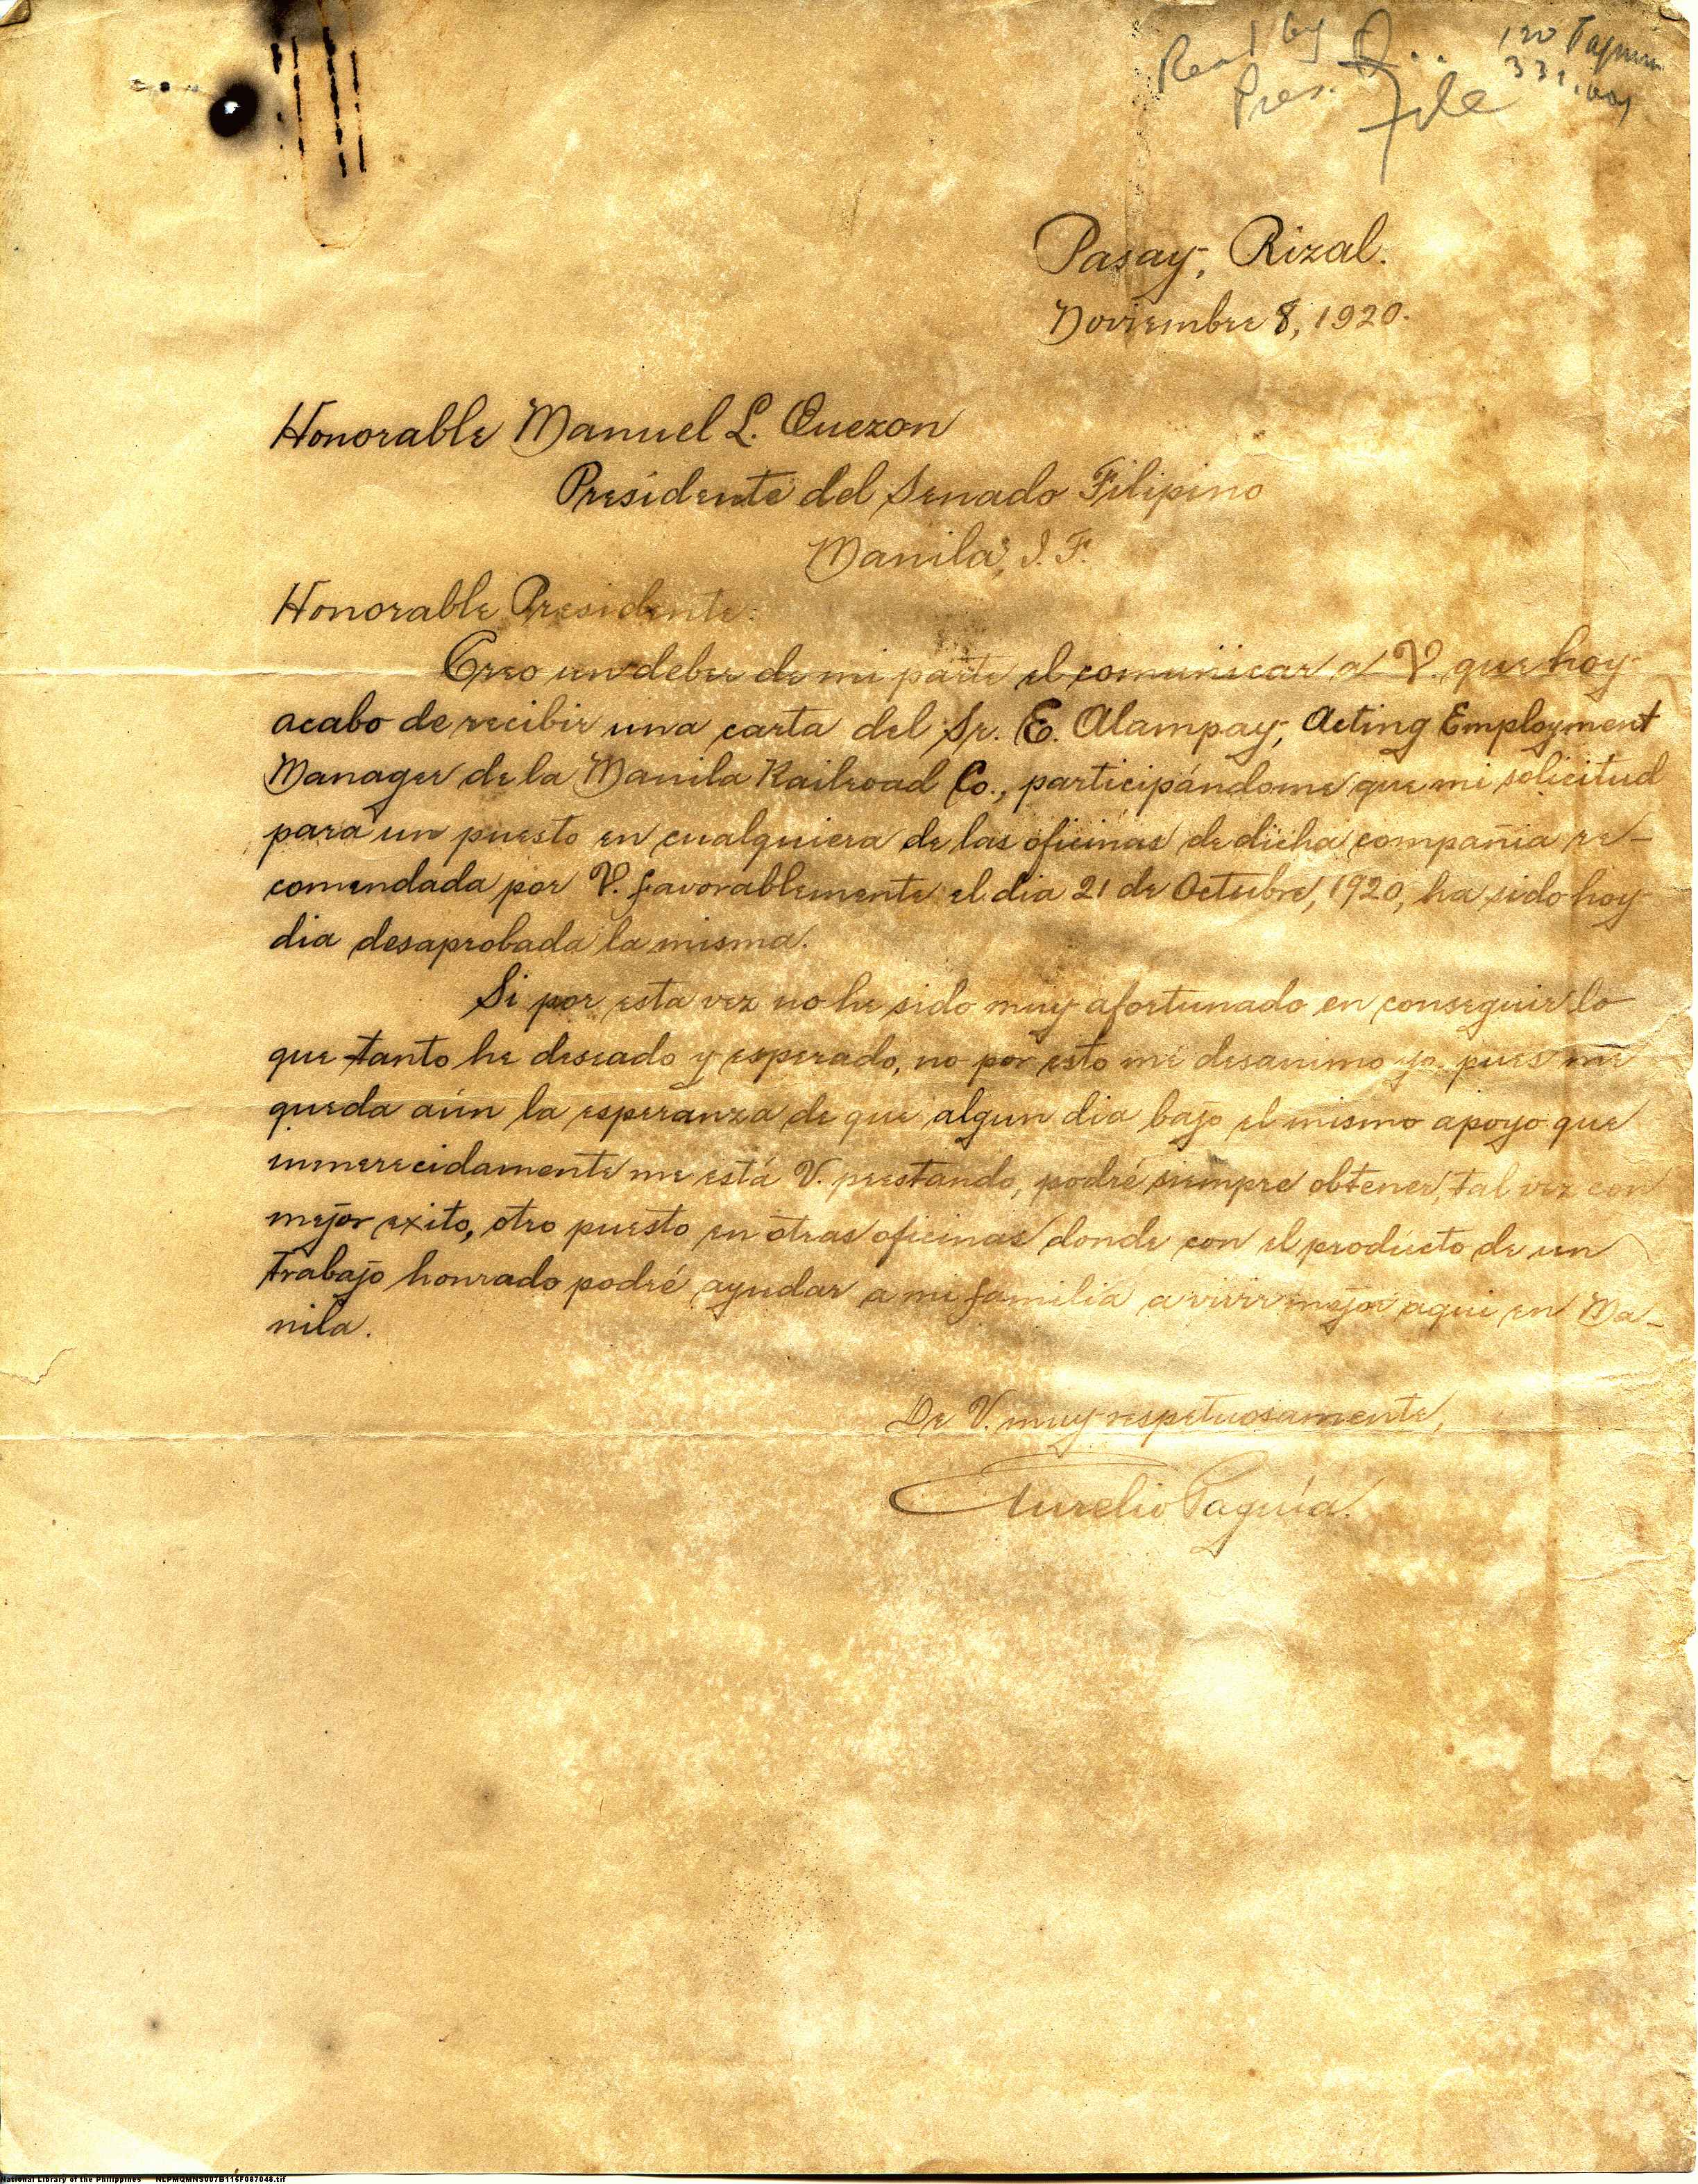 Read by
Pres.
File
Pasay, Rizal.
Noviembre 8, 1920.
Honorable Manuel L. Quezon
Presidente del Senado Filipino
Manila, I. F.
Honorable Presidente:
Creo un deber de mi parte el comunicar a V. que hoy
acabo de recibir una carta del Sr. E. Alampay, Acting Employment
Manager de la Manila Railroad Co., participándome que mi solicitud
para un puesto en cualquiera de las oficinas de dicha compañia re-
comendada por V. favorablemente el dia 21 de Octubre, 1920, ha sido hoy
dia desaprobada la misma.
Si por esta vez no he sido muy afortunado en conseguir lo
que tanto he deseado y esperado, no por esto me desanimo yo, pues me
queda aún la esperanza de que algun dia bajo el mismo apoyo que
inmerecidamente me está V. prestando, podré siempre obtener, tal vez con
mejor exito, otro puesto en otras oficinas donde con el producto de un
trabajo honrado podré ayudar a mi familia a vivir mejor aqui en Ma-
nila.
De V. muy respetuosamente,
Aurelio Paguía.
National Library of the Philippines